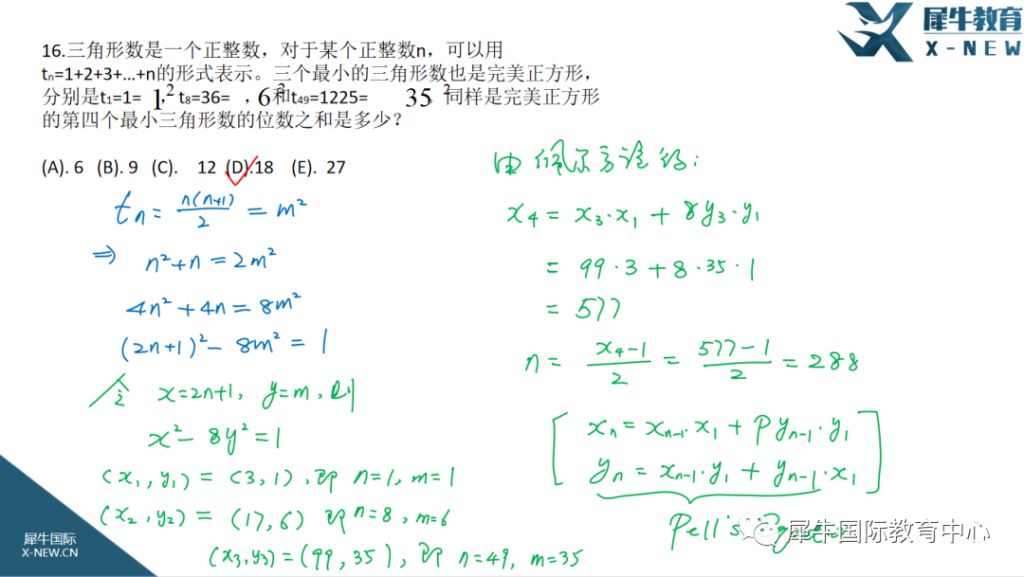 犀牛教育
X-NEW
16.三角形数是一个正整数，对于某个正整数n，可以用
tₙ=1+2+3+...+n的形式表示。三个最小的三角形数也是完美正方形，
分别是t₁=1= 1², t₈=36= ，6²和t₄₉=1225= 35². 同样是完美正方形
的第四个最小三角形数的位数之和是多少?
(A). 6 (B). 9 (C). 12 (D).18 (E). 27
tₙ = n(n+1)/2 = m²
⇒ n²+n = 2m²
4n²+4n = 8m²
(2n+1)² - 8m² = 1
令 x=2n+1, y=m, 则
x² - 8y² = 1
(x₁, y₁) = (3, 1), 即 n=1, m=1
(x₂, y₂) = (17, 6) 即 n=8, m=6
(x₃, y₃) = (99, 35), 即 n=49, m=35
由佩尔方程得:
x₄ = x₃·x₁ + 8y₃·y₁
= 99·3 + 8·35·1
= 577
n = (x₄-1)/2 = (577-1)/2 = 288
xₙ = xₙ₋₁·x₁ + Pyₙ₋₁·y₁
yₙ = xₙ₋₁·y₁ + yₙ₋₁·x₁
Pell's
犀牛国际教育中心
犀牛国际
X-NEW.CN